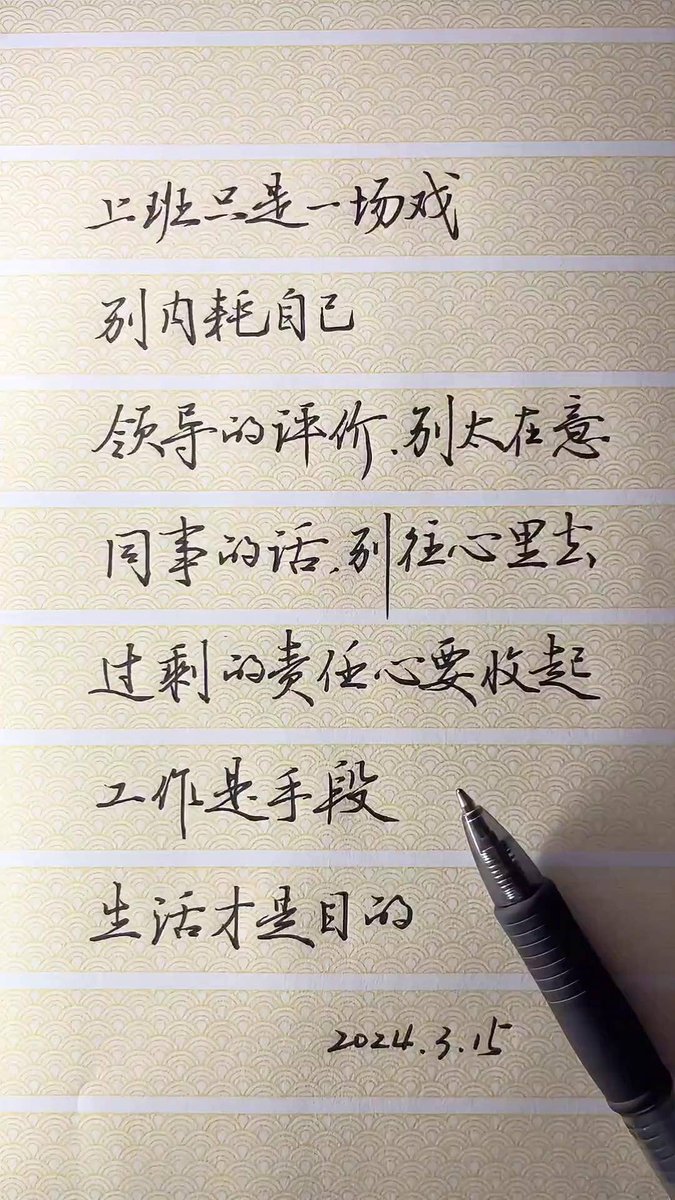 上班只是一场戏
别内耗自己
领导的评价、别太在意
同事的话、别往心里去
过剩的责任心要收起
工作是手段
生活才是目的
2024.3.15